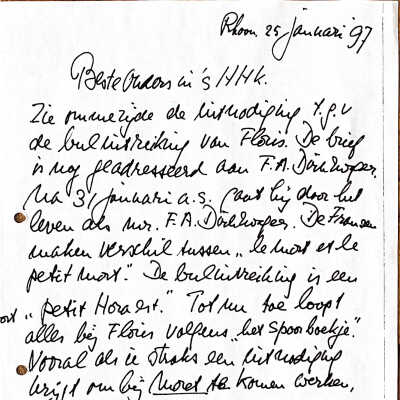 Rhoon 25 januari '97
Beste Ouders in 's HHK.
Zie ommezijde de uitnodiging t.g.v
de buluitreiking van Floris. De brief
is nog geadresseerd aan F.A.
Na 31 januari a.s. gaat hij door het
leven als mr. F.A. De Fransen
maken verschil tussen "le mort et le
petit mort". De buluitreiking is een
"petit Horaest." Tot nu toe loopt
alles bij Floris volgens "het spoorboekje".
Vooral als ie straks een uitnodiging
krijgt om bij Moret te komen werken,